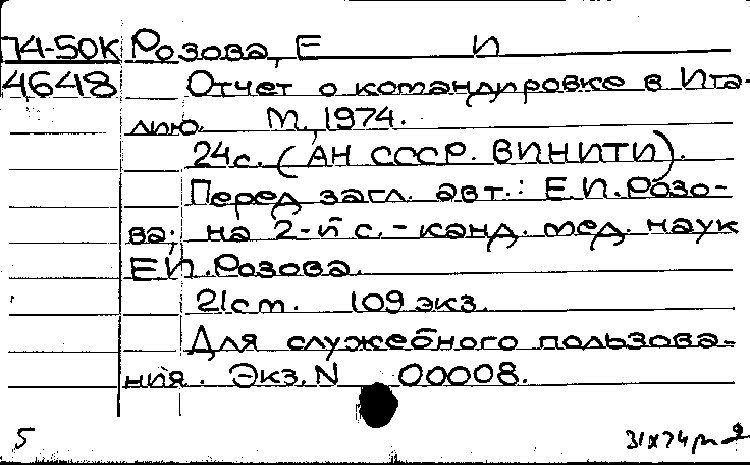 74-50К Розова, Е И
4648 Отчет о командировке в Ита-
лию. М., 1974.
24с. (АН СССР. ВИНИТИ).
Перед загл. авт.: Е.И. Розо-
ва; на 2-й с. - канд. мед. наук
Е.И. Розова.
21 см. 109 экз.
Для служебного пользова-
ния. Экз. N 00008.
5